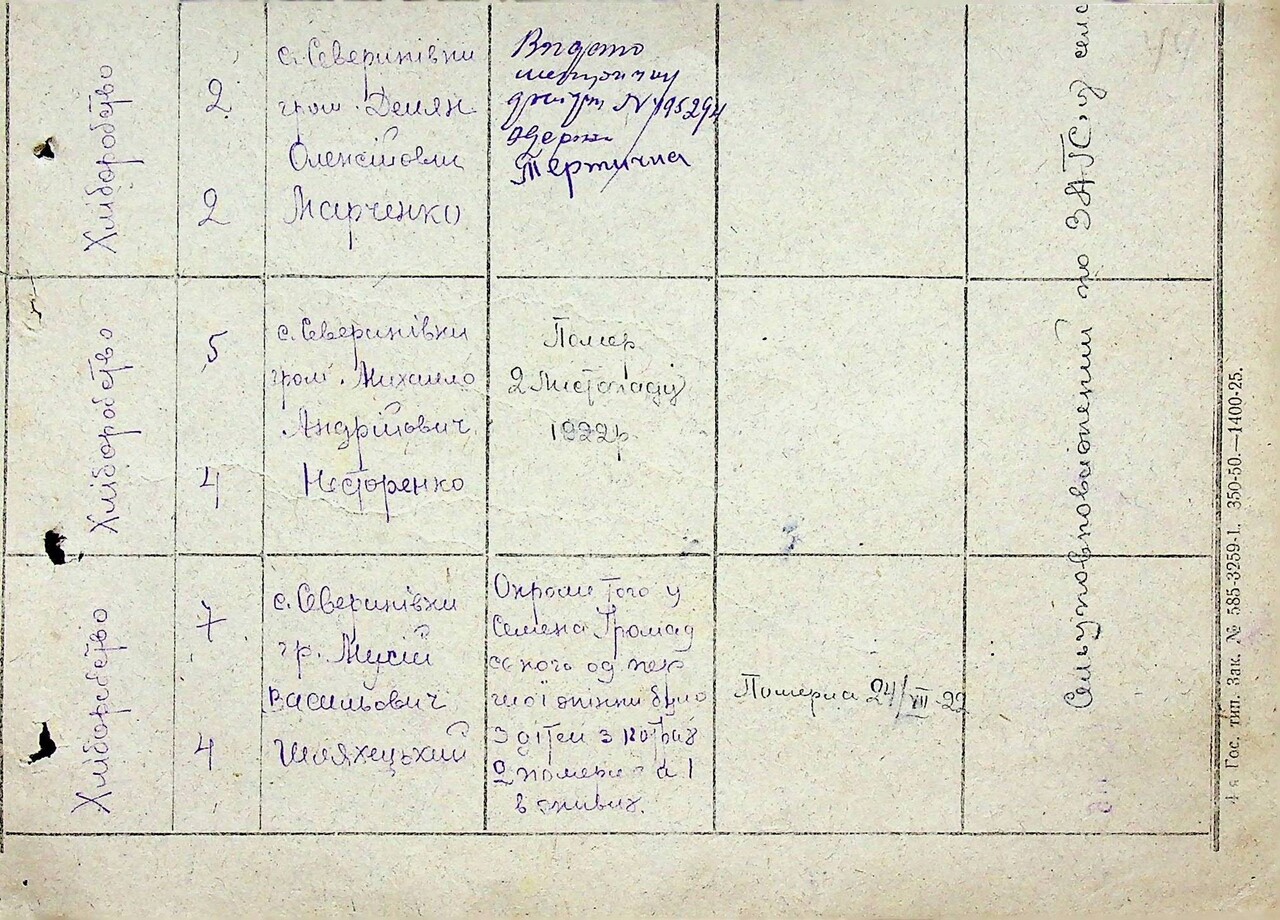 Хліборобство
2
2
с. Северинівки
гром. Демян
Олексійович
Марченко
Видато
метричну
N 195294
Тертична
Хліборобство
5
4
с. Северинівки
гром. Михаило
Андрійович
Несторенко
Помер
2 Листопаду
1922 р
Хліборобство
7
4
с. Северинівки
гр. Мусій
Васильович
Шляхецький
Окром того у
Семена Громад
ського од пер
шої жінки було
3 дітей з котрих
2 померло а 1
в живих.
Померла 24/VII-22
Сельуповноважений по ЗАГС,у
4-я Гос. тип. Зак. № 585-3259-1. 350-50.—1400-25.